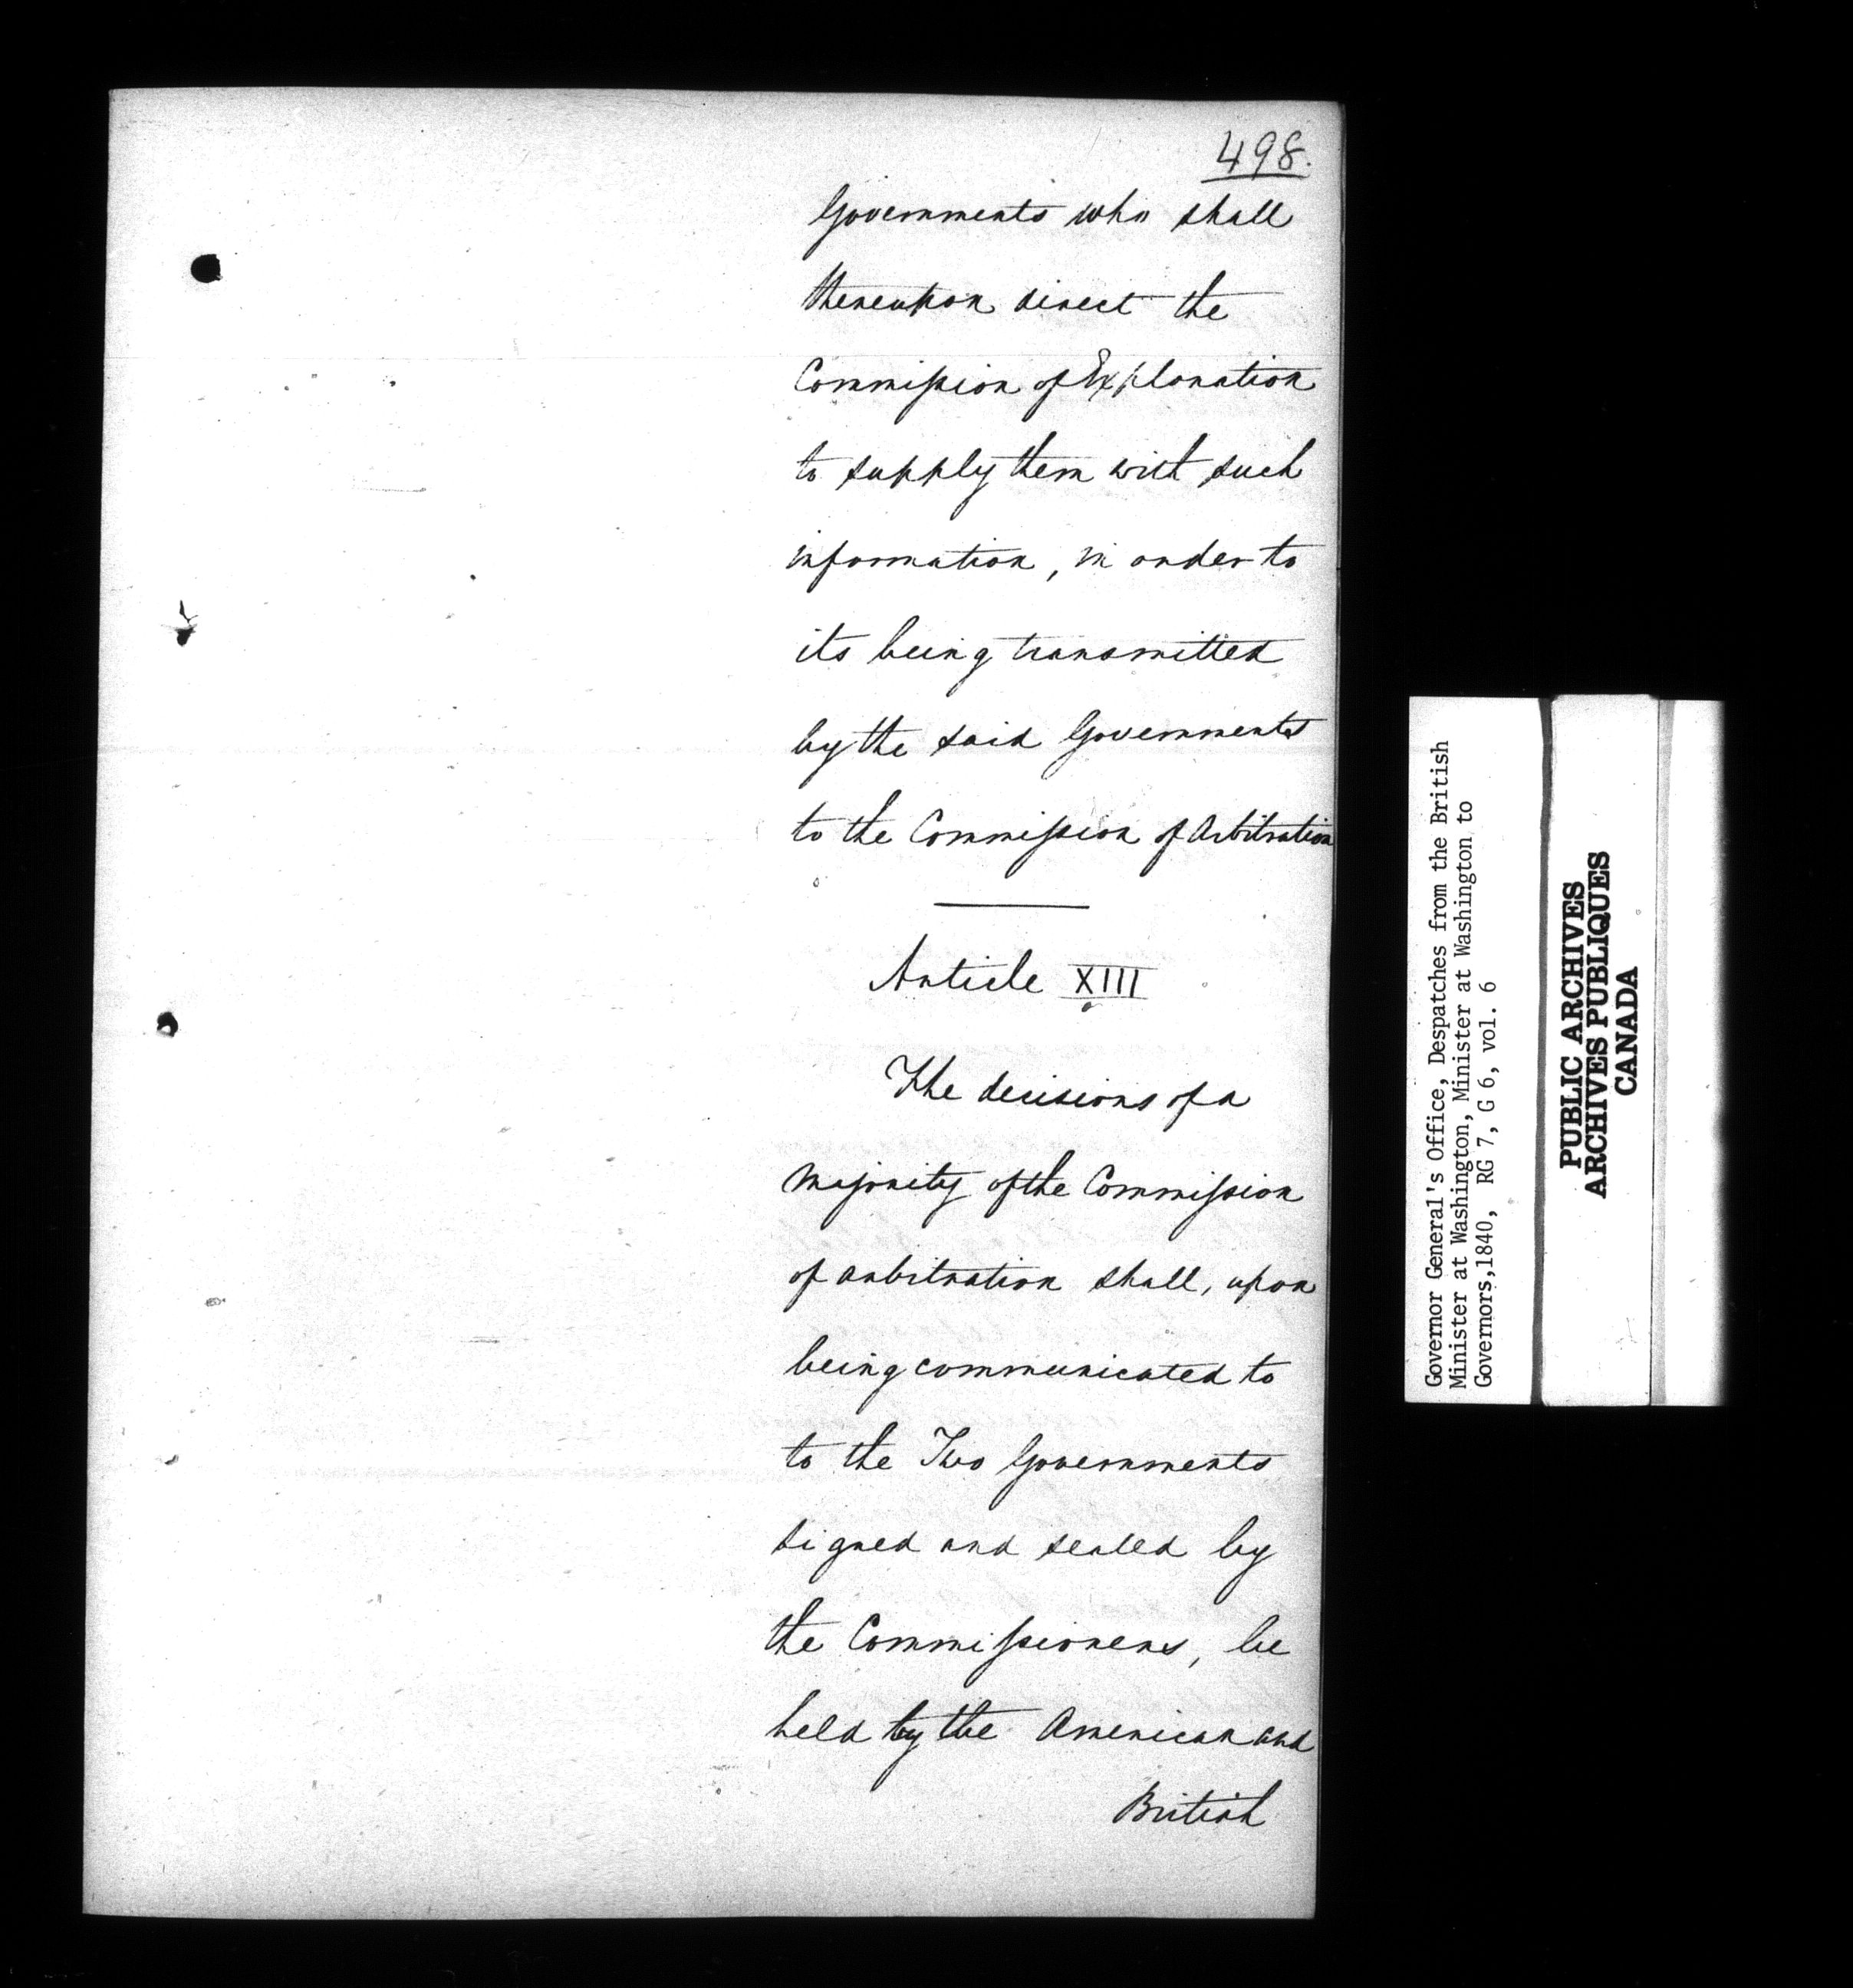 498.
Governments who shall
thereupon direct the
Commiſsion of Explanation
to supply them with such
information, in order to
its being transmitted
by the said Governments
to the Commiſsion of Arbitration
Article XIII
The decisions of a
majority of the Commiſsion
of arbitration shall, upon
being communicated to
to the Two Governments
signed and sealed by
the Commiſsioners, be
held by the American and
British
Governor General's Office, Despatches from the British
Minister at Washington, Minister at Washington to
Governors,1840, RG 7, G 6, vol. 6
PUBLIC ARCHIVES
ARCHIVES PUBLIQUES
CANADA